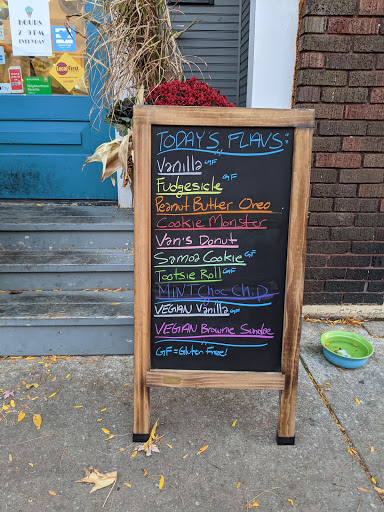 HOURS
2-9PM
EVERYDAY
TODAY'S FLAVS:
Vanilla GF
Fudgesicle GF
Peanut Butter Oreo
Cookie Monster
Van's Donut
Samoa Cookie GF
Tootsie Roll GF
MINT Choc Chip
VEGAN Vanilla GF
VEGAN Brownie Sundae
GF=Gluten Free!